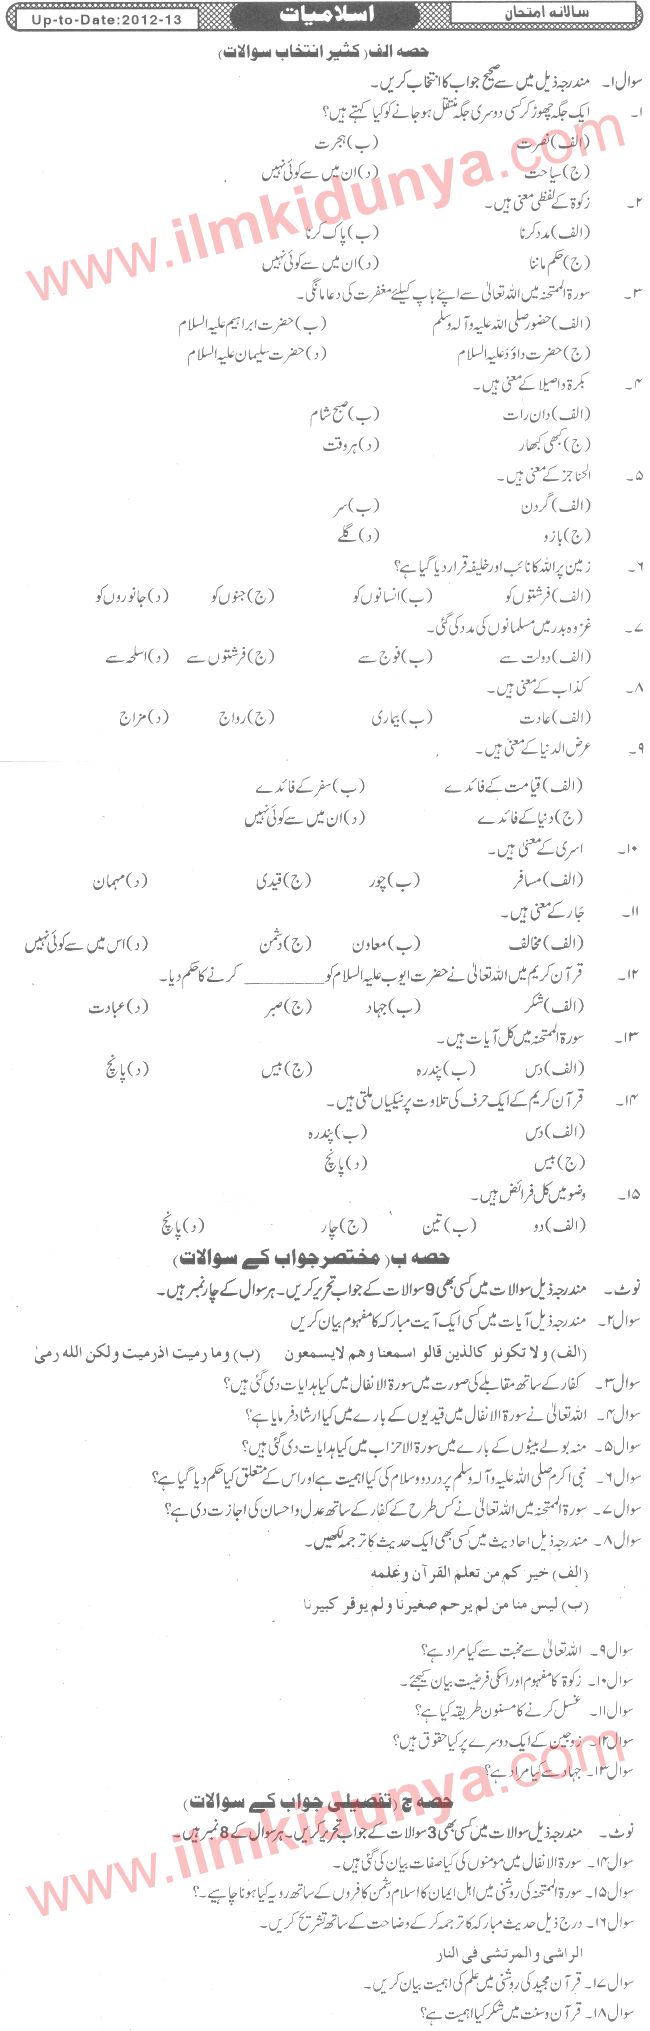 سالانہ امتحان
اسلامیات
Up-to-Date:2012-13
حصہ الف (کثیر انتخاب سوالات)
سوال ا۔ مندرجہ ذیل میں سے صحیح جواب کا انتخاب کریں۔
ا۔ ایک جگہ چھوڑ کر کسی دوسری جگہ منتقل ہو جانے کو کیا کہتے ہیں؟
(الف) نصرت (ب) ہجرت
(ج) سیاحت (د) ان میں سے کوئی نہیں
۲۔ زکوۃ کے لفظی معنی ہیں۔
(الف) مدد کرنا (ب) پاک کرنا
(ج) حکم ماننا (د) ان میں سے کوئی نہیں
۳۔ سورۃ الممتحنہ میں اللہ تعالیٰ سے اپنے باپ کیلئے مغفرت کی دعا مانگی۔
(الف) حضور صلی اللہ علیہ وآلہ وسلم (ب) حضرت ابراہیم علیہ السلام
(ج) حضرت داؤد علیہ السلام (د) حضرت سلیمان علیہ السلام
۴۔ بکرۃ واصیلا کے معنی ہیں۔
(الف) دان رات (ب) صبح شام
(ج) کبھی کبھار (د) ہر وقت
۵۔ الحناجز کے معنی ہیں۔
(الف) گردن (ب) سر
(ج) بازو (د) گلے
۶۔ زمین پر اللہ کا نائب اور خلیفہ قرار دیا گیا ہے؟
(الف) فرشتوں کو (ب) انسانوں کو (ج) جنوں کو (د) جانوروں کو
۷۔ غزوہ بدر میں مسلمانوں کی مدد کی گئی۔
(الف) دولت سے (ب) فوج سے (ج) فرشتوں سے (د) اسلحہ سے
۸۔ کذاب کے معنی ہیں۔
(الف) عادت (ب) بیماری (ج) رواج (د) مزاج
۹۔ عرض الدنیا کے معنی ہیں۔
(الف) قیامت کے فائدے (ب) سفر کے فائدے
(ج) دنیا کے فائدے (د) ان میں سے کوئی نہیں
۱۰۔ اسری کے معنی ہیں۔
(الف) مسافر (ب) چور (ج) قیدی (د) مہمان
۱۱۔ جار کے معنی ہیں۔
(الف) مخالف (ب) معاون (ج) دشمن (د) اس میں سے کوئی نہیں
۱۲۔ قرآن کریم میں اللہ تعالیٰ نے حضرت ایوب علیہ السلام کو ________ کرنے کا حکم دیا۔
(الف) شکر (ب) جہاد (ج) صبر (د) عبادت
۱۳۔ سورۃ الممتحنہ میں کل آیات ہیں۔
(الف) دس (ب) پندرہ (ج) بیس (د) پانچ
۱۴۔ قرآن کریم کے ایک حرف کی تلاوت پر نیکیاں ملتی ہیں۔
(الف) دس (ب) پندرہ
(ج) بیس (د) پانچ
۱۵۔ وضو میں کل فرائض ہیں۔
(الف) دو (ب) تین (ج) چار (د) پانچ
حصہ ب (مختصر جواب کے سوالات)
نوٹ۔ مندرجہ ذیل سوالات میں کسی بھی 9 سوالات کے جواب تحریر کریں۔ ہر سوال کے چار نمبر ہیں۔
سوال ۲۔ مندرجہ ذیل آیات میں کسی ایک آیت مبارکہ کا مفہوم بیان کریں
(الف) ولا تکونو کالذین قالو اسمعنا وھم لایسمعون (ب) وما رمیت اذرمیت ولکن اللہ رمیٰ
سوال ۳۔ کفار کے ساتھ مقابلے کی صورت میں سورۃ الانفال میں کیا ہدایات دی گئی ہیں؟
سوال ۴۔ اللہ تعالیٰ نے سورۃ الانفال میں قیدیوں کے بارے میں کیا ارشاد فرمایا ہے؟
سوال ۵۔ منہ بولے بیٹوں کے بارے میں سورۃ الاحزاب میں کیا ہدایات دی گئی ہیں؟
سوال ۶۔ نبی اکرم صلی اللہ علیہ وآلہ وسلم پر درود و سلام کی کیا اہمیت ہے اور اس کے متعلق کیا حکم دیا گیا ہے؟
سوال ۷۔ سورۃ الممتحنہ میں اللہ تعالیٰ نے کس طرح کے کفار کے ساتھ عدل و احسان کی اجازت دی ہے؟
سوال ۸۔ مندرجہ ذیل احادیث میں کسی بھی ایک حدیث کا ترجمہ لکھیں۔
(الف) خیر کم من تعلم القرآن وعلمه
(ب) لیس منا من لم یرحم صغیرنا ولم یوقر کبیرنا
سوال ۹۔ اللہ تعالیٰ سے محبت سے کیا مراد ہے؟
سوال ۱۰۔ زکوۃ کا مفہوم اور اسکی فرضیت بیان کیجئے۔
سوال ۱۱۔ غسل کرنے کا مسنون طریقہ کیا ہے؟
سوال ۱۲۔ زوجین کے ایک دوسرے پر کیا حقوق ہیں؟
سوال ۱۳۔ جہاد سے کیا مراد ہے؟
حصہ ج (تفصیلی جواب کے سوالات)
نوٹ۔ مندرجہ ذیل سوالات میں کسی بھی 3 سوالات کے جواب تحریر کریں۔ ہر سوال کے 8 نمبر ہیں۔
سوال ۱۴۔ سورۃ الانفال میں مومنوں کی کیا صفات بیان کی گئی ہیں۔
سوال ۱۵۔ سورۃ الممتحنہ کی روشنی میں اہل ایمان کا اسلام دشمن کافروں کے ساتھ رویہ کیا ہونا چاہیے۔؟
سوال ۱۶۔ درج ذیل حدیث مبارکہ کا ترجمہ کر کے وضاحت کے ساتھ تشریح کریں۔
الراشی والمرتشی فی النار
سوال ۱۷۔ قرآن مجید کی روشنی میں علم کی اہمیت بیان کریں۔
سوال ۱۸۔ قرآن و سنت میں شکر کیا اہمیت ہے؟
www.ilmkidunya.com
www.ilmkidunya.com